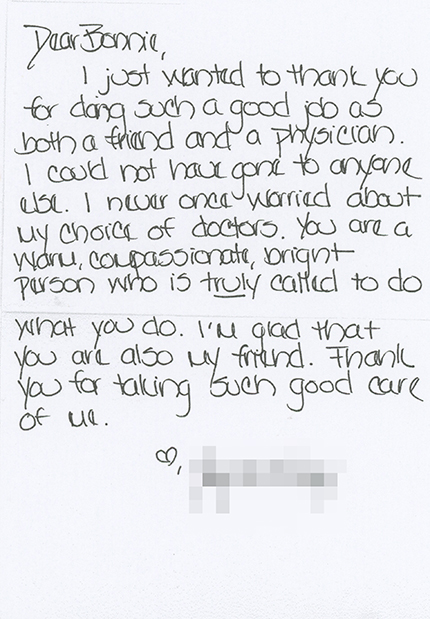 Dear Bonnie,
I just wanted to thank you
for doing such a good job as
both a friend and a physician.
I could not have gone to anyone
else. I never once worried about
my choice of doctors. You are a
warm, compassionate, bright
person who is truly called to do
what you do. I'm glad that
you are also my friend. Thank
you for taking such good care
of me.
♡,